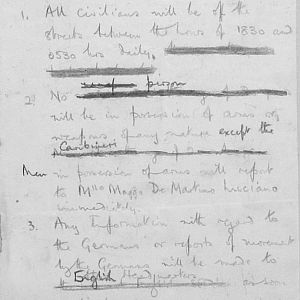 1. All Civilians will be off the
streets between the hours of 1830 and
0530 hrs daily.
person
2. No
will be in possession of arms or
weapons of any nature except the
Carabinieri
Men in possession of arms will report
to Mllo Maggo De Martino Luciano
immediately.
3. Any Information with regard to
the Germans or reports of movement
by the Germans will be made to
English Headquarters
as soon